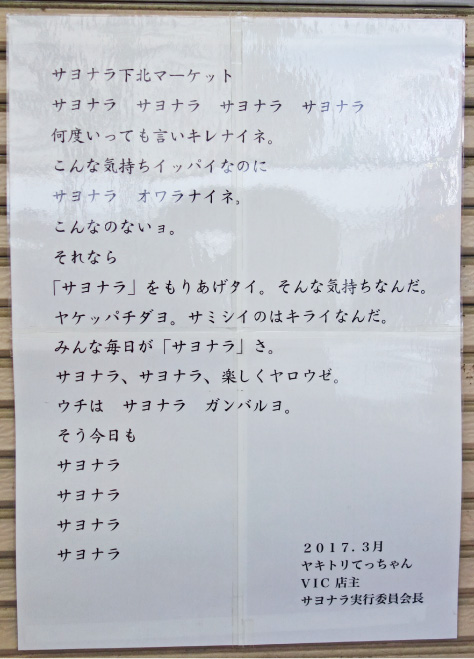 サヨナラ下北マーケット
サヨナラ　サヨナラ　サヨナラ　サヨナラ
何度いっても言いキレナイネ。
こんな気持ちイッパイなのに
サヨナラ　オワラナイネ。
こんなのないョ。
それなら
「サヨナラ」をもりあげタイ。そんな気持ちなんだ。
ヤケッパチダヨ。サミシイのはキライなんだ。
みんな毎日が「サヨナラ」さ。
サヨナラ、サヨナラ、楽しくヤロウゼ。
ウチは　サヨナラ　ガンバルヨ。
そう今日も
サヨナラ
サヨナラ
サヨナラ
サヨナラ
２０１７．３月
ヤキトリてっちゃん
ＶＩＣ店主
サヨナラ実行委員会長